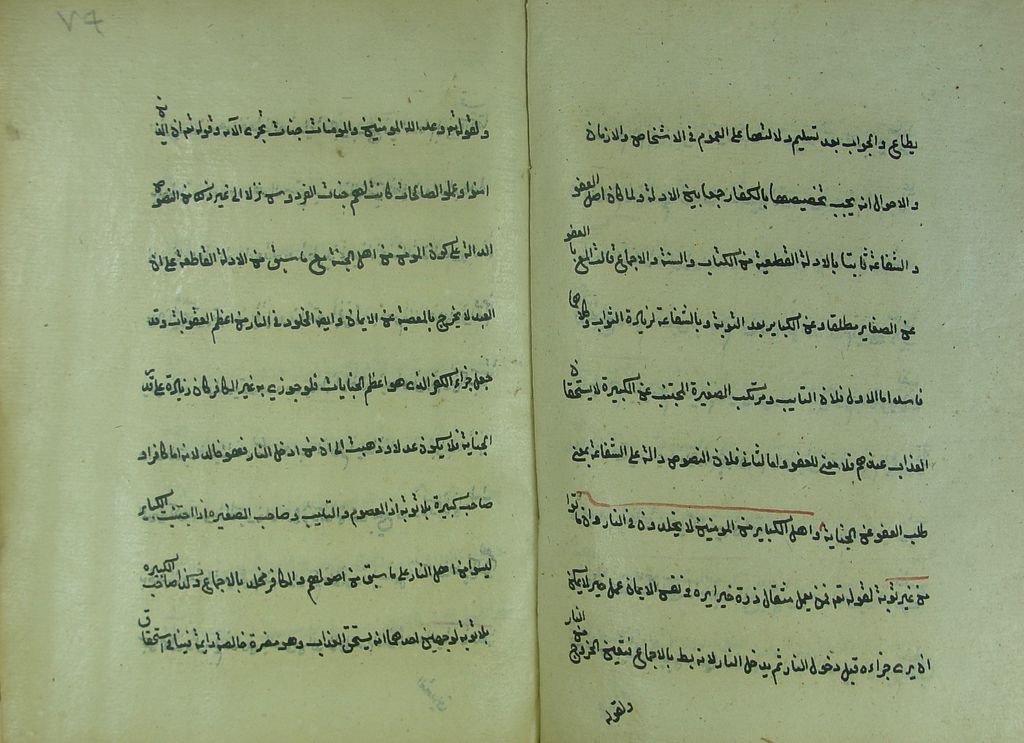 يطاع والجواب بعد تسليم دلالتها على العموم في الاشخاص والازمان
والاحوال انه يجب تخصيصها بالكفار جمعا بين الادلة ولما كان اصل العفو
والشفاعة ثابتا بالادلة القطعية من الكتاب والسنة والاجماع قالت المع بالعفو
عن الصغاير مطلقا وعن الكباير بعد التوبة وبالشفاعة لزيادة الثواب وكلاهما
فاسد اما الاول فلان التايب ومرتكب الصغيرة المجتنب عن الكبيرة لا يستحقان
العذاب عندهم فلا معنى للعفو واما الثاني فلان النصوص دالة على الشفاعة بمعنى
طلب العفو عن الجناية واهل الكباير من المومنين لا يخلدون في النار وان ماتوا
من غير توبة لقوله تعه فمن يعمل مثقال ذرة خيرا يره ونفس الايمان عمل خير لا يمكن
ان يرى جزاءه قبل دخول النار ثم يدخل النار لانه بط بالاجماع فتعين الخروج من النار
ولقوله
٧٦
ولقوله تع وعد الله المومنين والمومنات جنات تجرى الآية وقوله تعه ان الذين
امنوا وعملوا الصالحات كانت لهم جنات الفردوس نزلا الى غير ذلك من النصوص
الدالة على كون المومن من اهل الجنة مع ما سبق من الادلة القاطعة على ان
العبد لا يخرج بالمعصية عن الايمان وايضا الخلود في النار من اعظم العقوبات وقد
جعل جزاء الكفر الذي هو اعظم الجنايات فلو جوزي به غير الكافر كان زيادة على قدر
الجناية فلا يكون عدلا وذهبت الى ان من ادخل النار فهو خالد لانه اما كافر او
صاحب كبيرة بلا توبة اذ المعصوم والتايب وصاحب الصغيره اذا اجتنب الكباير
ليسوا من اهل النار على ما سبق من اصولهم والكافر مخلد بالاجماع وكذا صاحب الكبيره
بلا توبة لوجهين احدهما انه يستحق العذاب وهو مضرة خالصة دايمة فينافي استحقاق